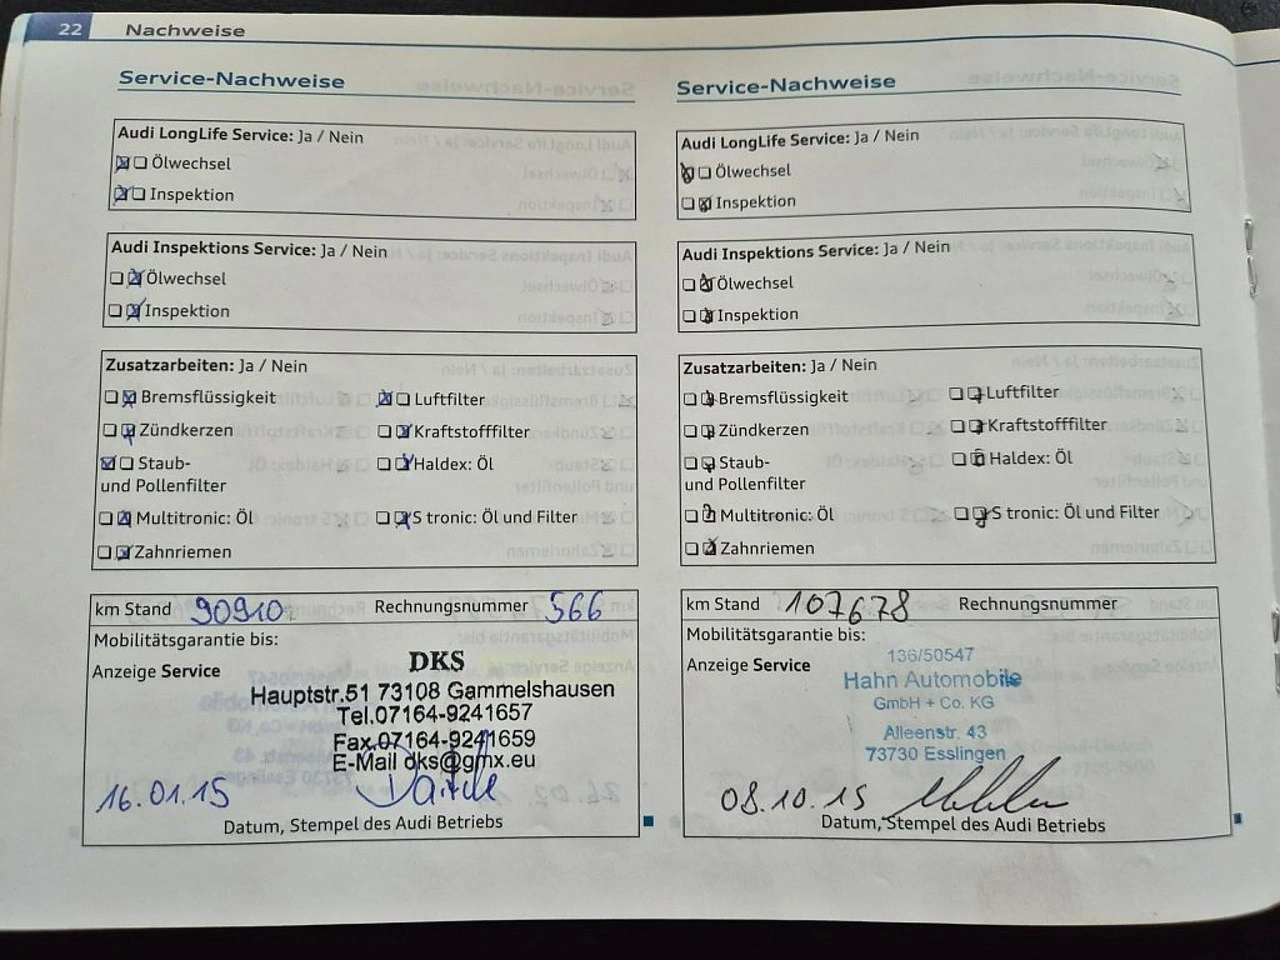 22 Nachweise
Service-Nachweise
Audi LongLife Service: Ja / Nein
Ölwechsel
Inspektion
Audi Inspektions Service: Ja / Nein
Ölwechsel
Inspektion
Zusatzarbeiten: Ja / Nein
Bremsflüssigkeit Luftfilter
Zündkerzen Kraftstofffilter
Staub- Haldex: Öl
und Pollenfilter
Multitronic: Öl S tronic: Öl und Filter
Zahnriemen
km Stand 90910 Rechnungsnummer 566
Mobilitätsgarantie bis:
Anzeige Service
DKS
Hauptstr.51 73108 Gammelshausen
Tel.07164-9241657
Fax.07164-9241659
E-Mail dks@gmx.eu
16.01.15
Datum, Stempel des Audi Betriebs
Service-Nachweise
Audi LongLife Service: Ja / Nein
Ölwechsel
Inspektion
Audi Inspektions Service: Ja / Nein
Ölwechsel
Inspektion
Zusatzarbeiten: Ja / Nein
Bremsflüssigkeit Luftfilter
Zündkerzen Kraftstofffilter
Staub- Haldex: Öl
und Pollenfilter
Multitronic: Öl S tronic: Öl und Filter
Zahnriemen
km Stand 107678 Rechnungsnummer
Mobilitätsgarantie bis:
Anzeige Service
136/50547
Hahn Automobile
GmbH + Co. KG
Alleenstr. 43
73730 Esslingen
08.10.15
Datum, Stempel des Audi Betriebs